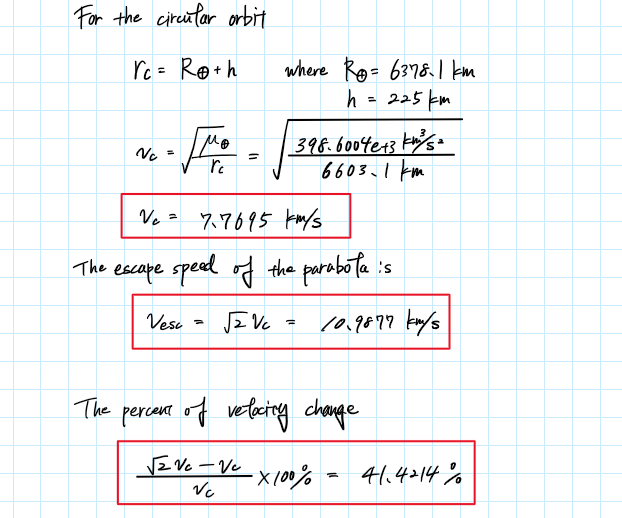 For the circular orbit
r_c = R_⊕ + h where R_⊕ = 6378.1 km
h = 225 km
v_c = √(μ_⊕ / r_c) = √(398.6004e+3 km³/s² / 6603.1 km)
v_c = 7.7695 km/s
The escape speed of the parabola is
V_esc = √2 v_c = 10.9877 km/s
The percent of velocity change
(√2 v_c − v_c) / v_c × 100% = 41.4214 %